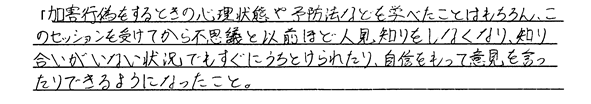 「加害行為をするときの心理状態や予防法などを学べたことはもちろん、こ
のセッションを受けてから不思議と以前ほど人見知りをしなくなり、知り
合いがいない状況でもすぐにうちとけられたり、自信をもって意見を言っ
たりできるようになったこと。